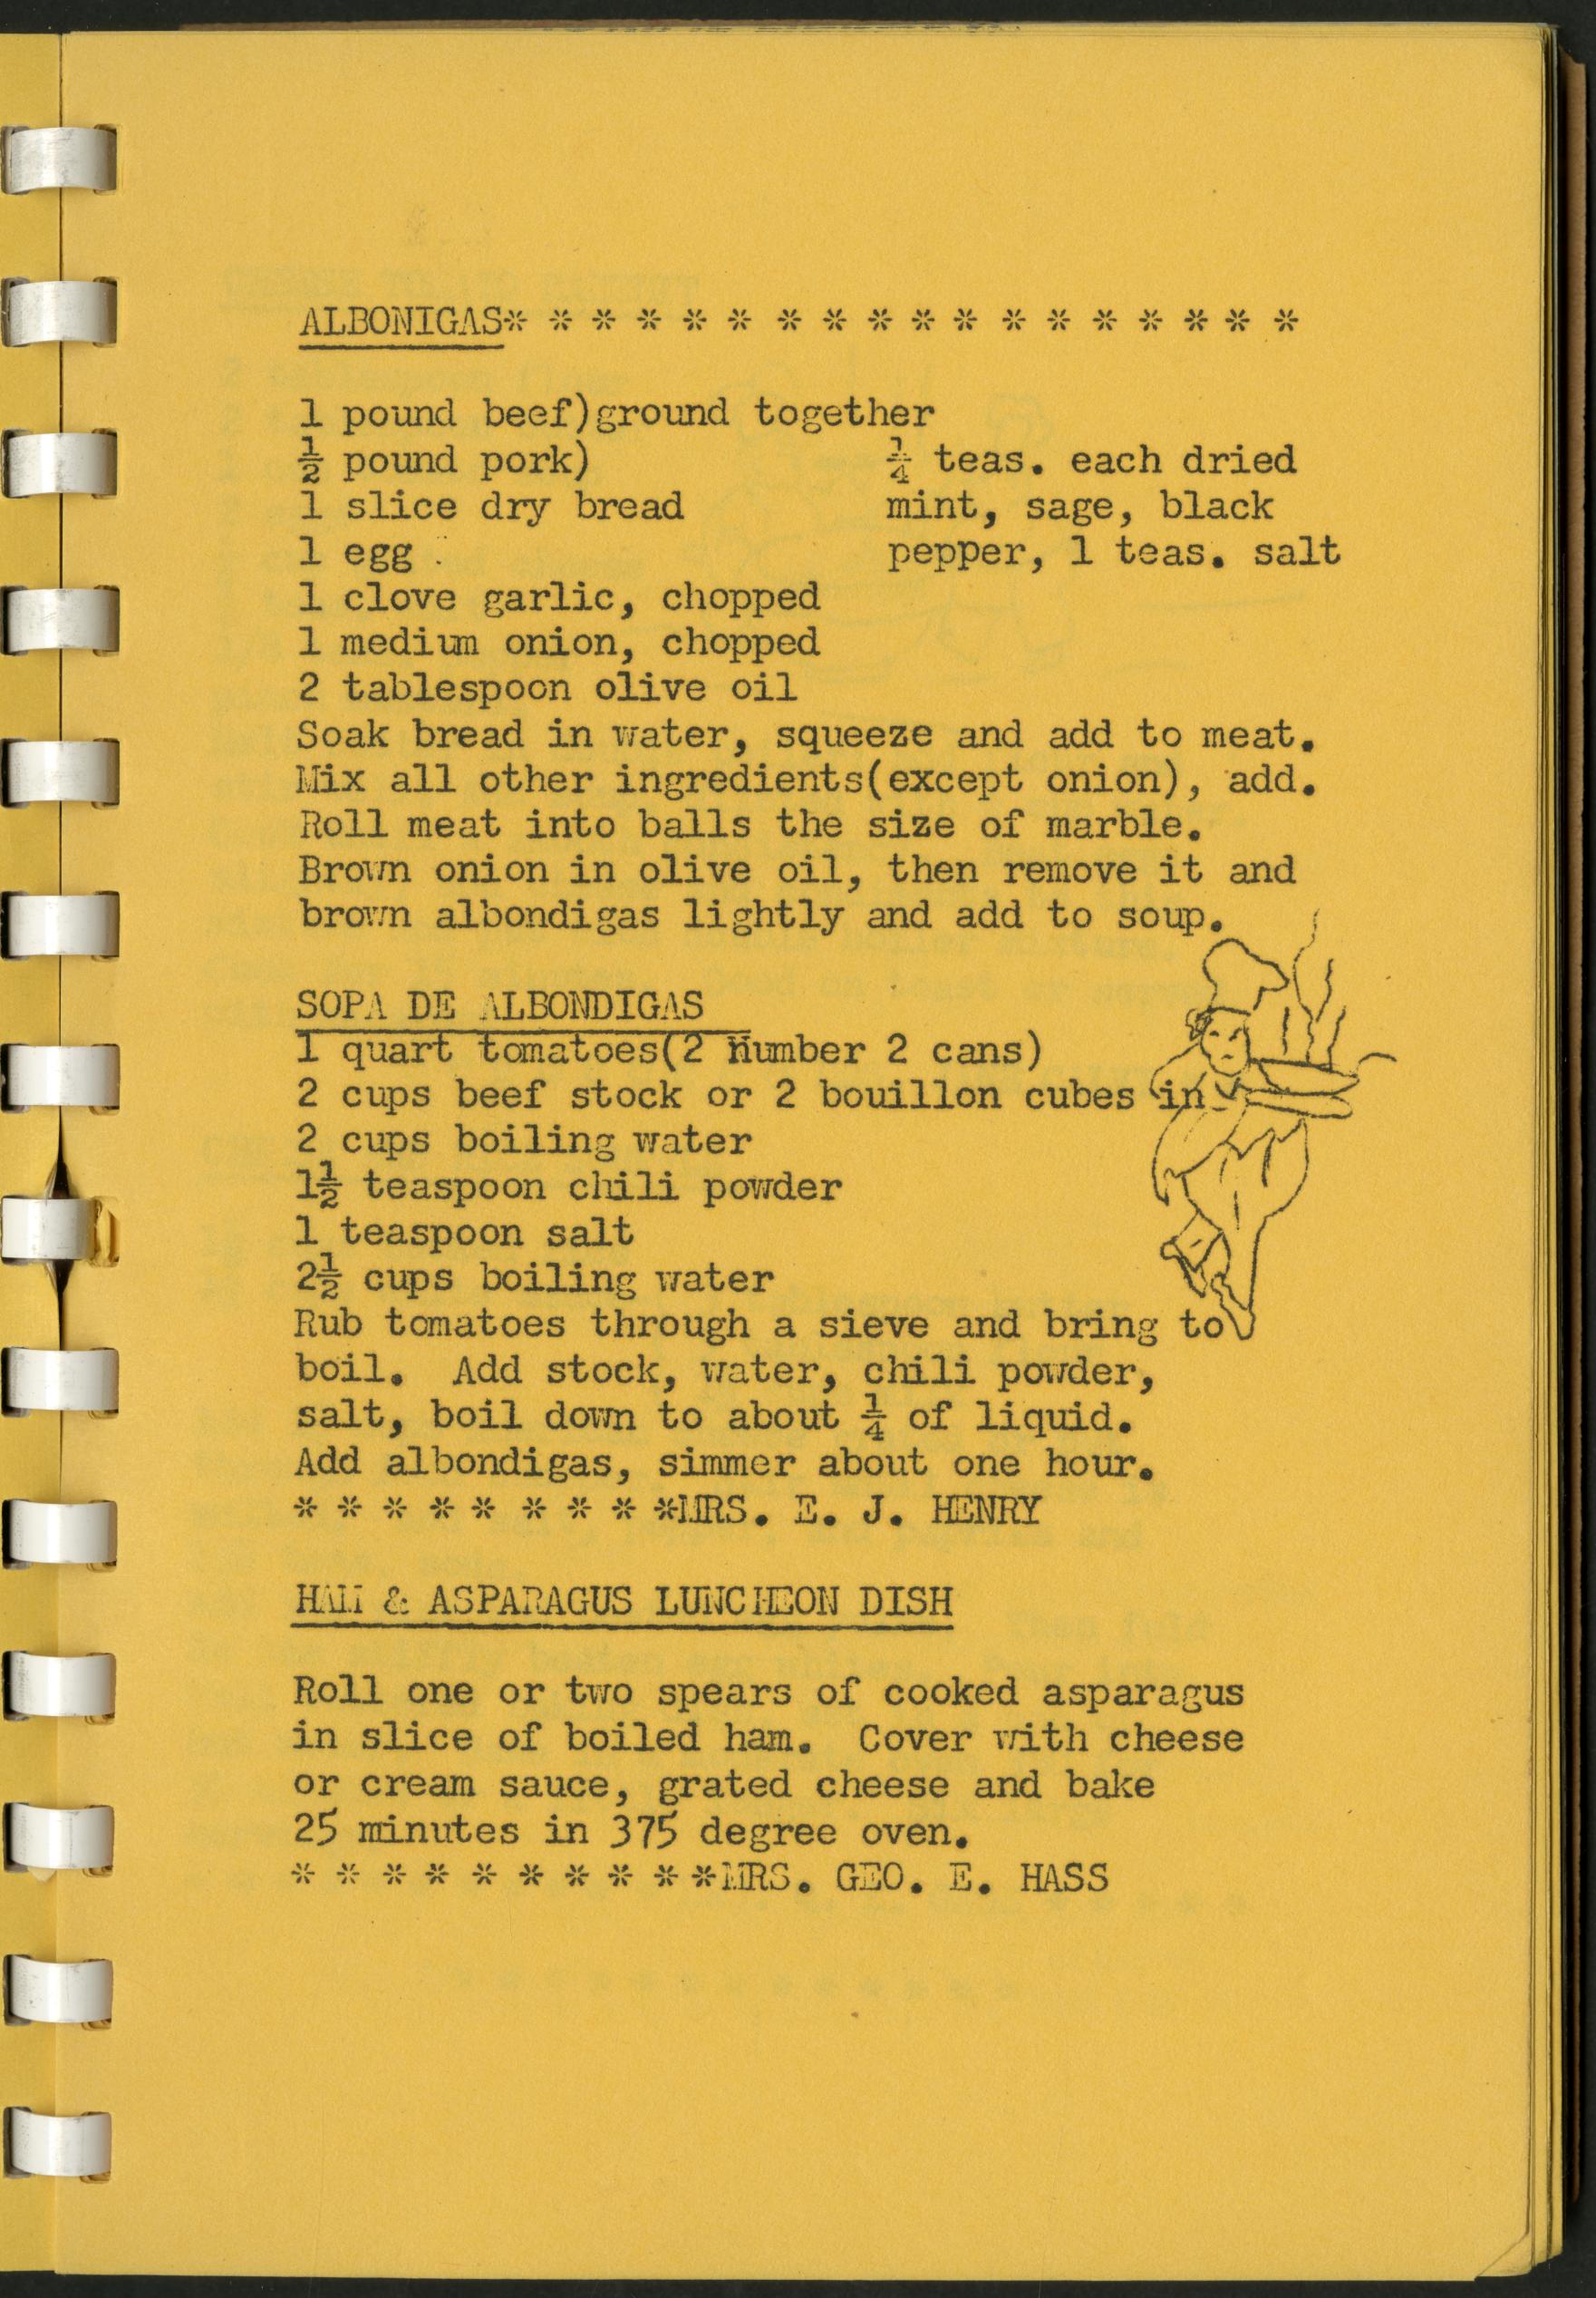 ALBONIGAS* * * * * * * * * * * * * * * * * *
1 pound beef)ground together
½ pound pork)
1 slice dry bread
1 egg
¼ teas. each dried
mint, sage, black
pepper, 1 teas. salt
1 clove garlic, chopped
1 medium onion, chopped
2 tablespoon olive oil
Soak bread in water, squeeze and add to meat.
Mix all other ingredients(except onion), add.
Roll meat into balls the size of marble.
Brown onion in olive oil, then remove it and
brown albondigas lightly and add to soup.
SOPA DE ALBONDIGAS
1 quart tomatoes(2 number 2 cans)
2 cups beef stock or 2 bouillon cubes in
2 cups boiling water
1½ teaspoon chili powder
1 teaspoon salt
2½ cups boiling water
Rub tomatoes through a sieve and bring to
boil. Add stock, water, chili powder,
salt, boil down to about ¼ of liquid.
Add albondigas, simmer about one hour.
* * * * * * * * *MRS. E. J. HENRY
HAM & ASPARAGUS LUNCHEON DISH
Roll one or two spears of cooked asparagus
in slice of boiled ham. Cover with cheese
or cream sauce, grated cheese and bake
25 minutes in 375 degree oven.
* * * * * * * * * *MRS. GEO. E. HASS